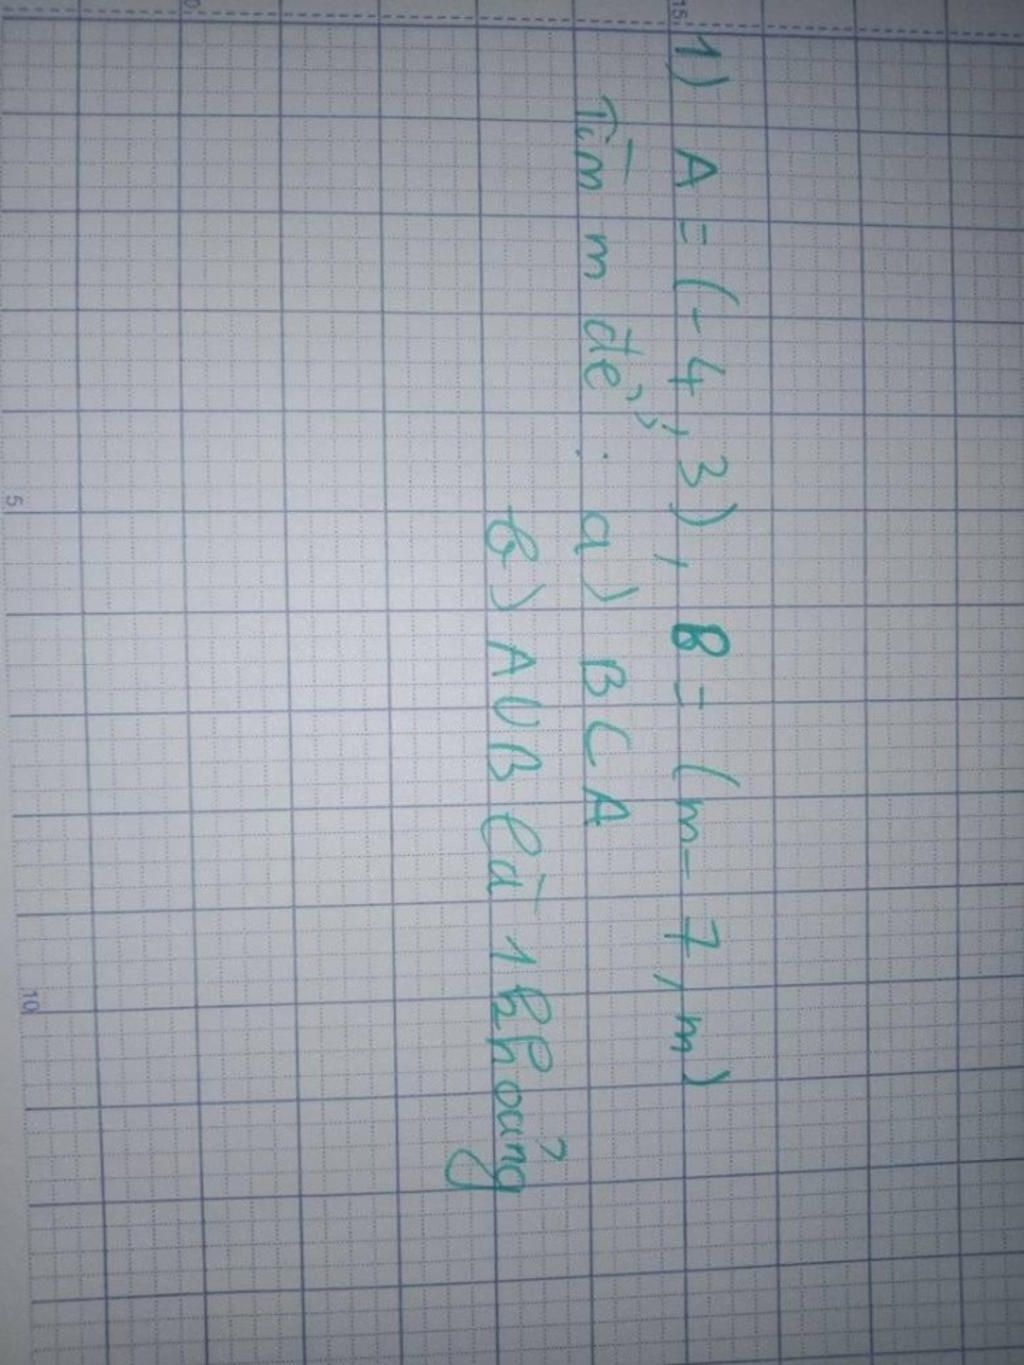 1) A = (-4; 3), B = (m-7, m)
Tìm m để: a) B ⊂ A
b) A ∪ B là 1 khoảng
15
0
5
10